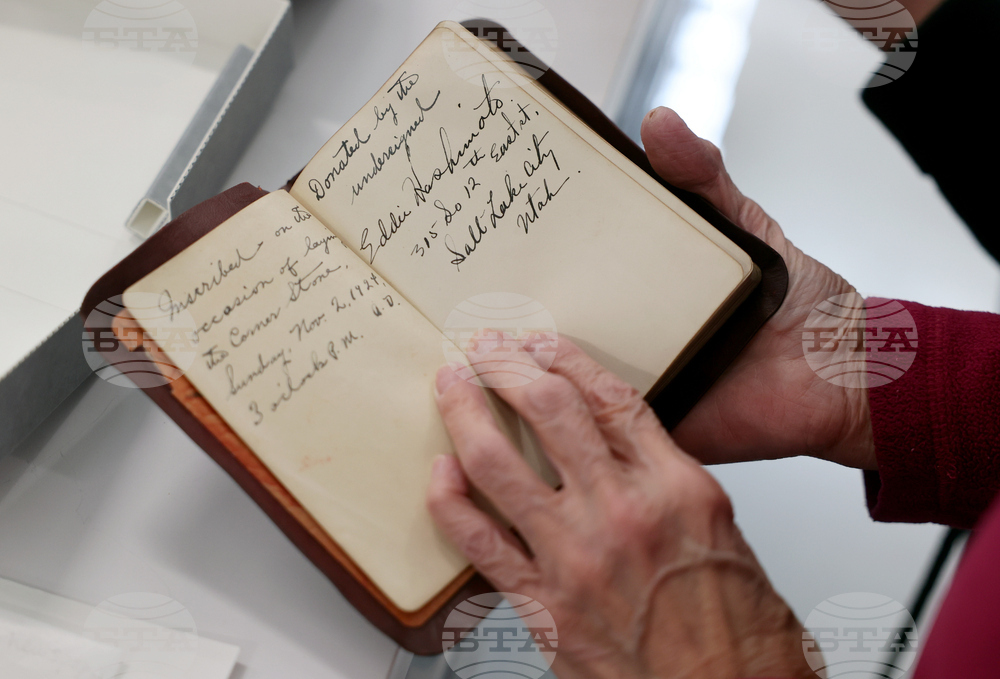 Inscribed on the
occasion of laying
the Corner Stone,
Sunday, Nov. 2, 1924,
3 o'clock P.M. A.D.
Donated by the
undersigned
Eddie Hashimoto
315 So 12th East st.,
Salt Lake City
Utah.
БТА
БТА
БТА
БТА
БТА
БТА
БТА
БТА
БТА